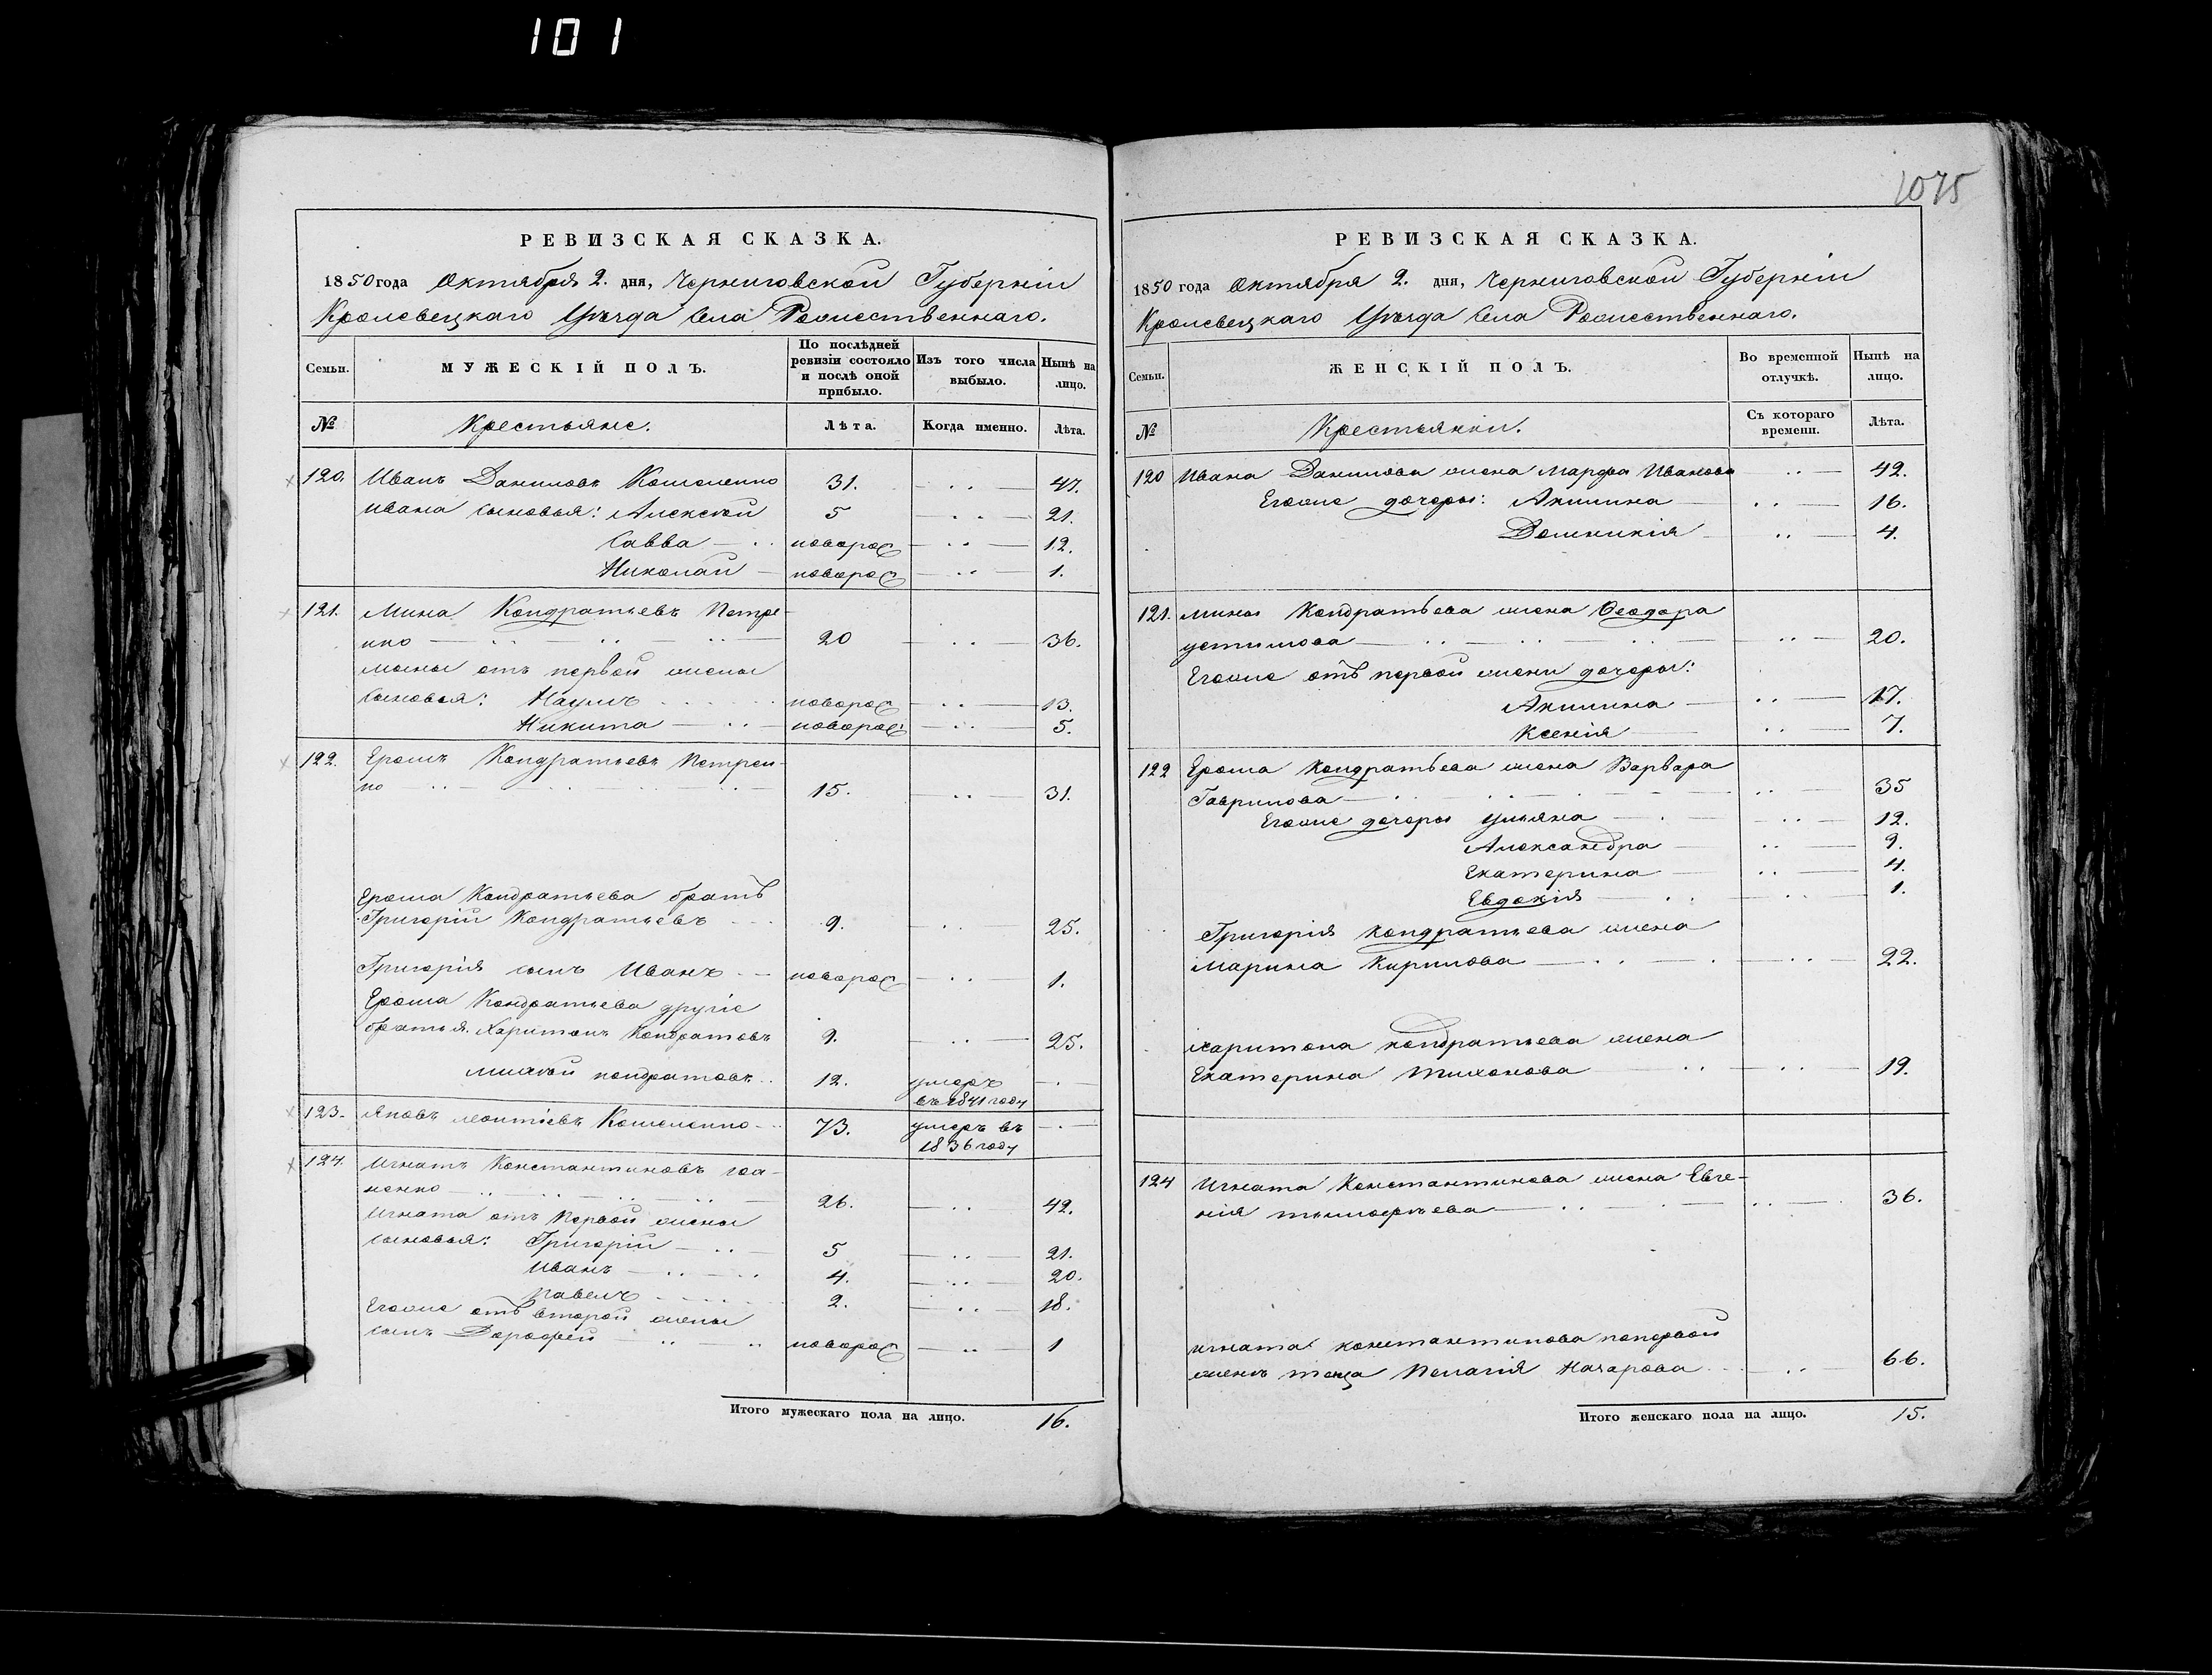 101
1075
РЕВИЗСКАЯ СКАЗКА.
1850 года Октября 2. дня, Черниговской Губерніи
Кролевецкаго Уѣзда села Рожественнаго.
Семьи.
МУЖЕСКІЙ ПОЛЪ.
По послѣдней ревизіи состояло и послѣ оной прибыло.
Изъ того числа выбыло.
Нынѣ на лицо.
№ Крестьяне. Лѣта. Когда именно. Лѣта.
120. Иванъ Даниловъ Кошеленко 31. 47.
Ивана сыновья: Алексѣй 5 21.
Савва новорож 12.
Николай новорож 1.
121. Мина Кондратьевъ Петре-
нко 20 36.
Мины отъ первой жены
сыновья: Наумъ новорож 13.
Никита новорож 5.
122. Ерома Кондратьевъ Петрен-
ко 15. 31.
Ерома Кондратьева братъ
Григорій Кондратьевъ 9. 25.
Григорія сынъ Иванъ новорож 1.
Ерома Кондратьева другіе
братья. Харитонъ Кондратовъ 9. 25.
Михей Кондратовъ 12. умеръ
въ 1841 году
123. Яковъ Леонтіевъ Кошеленко 73. умеръ въ
1836 году
124. Игнатъ Константиновъ
ненко 26. 42.
Игната отъ первой жены
сыновья: Григорій 5 21.
Иванъ 4. 20.
Павелъ 2. 18.
Егоже отъ второй жены
сынъ Дорофей новорож 1
Итого мужескаго пола на лицо. 16.
РЕВИЗСКАЯ СКАЗКА.
1850 года Октября 2. дня, Черниговской Губерніи
Кролевецкаго Уѣзда села Рожественнаго.
Семьи.
ЖЕНСКІЙ ПОЛЪ.
Во временной отлучкѣ.
Нынѣ на лицо.
№ Крестьянки. Съ котораго времени. Лѣта.
120 Ивана Данилова жена Марфа Иванова 42.
Егоже дочеры: Акилина 16.
Домникія 4.
121. Мины Кондратьева жена Ѳеодора
Устимова 20.
Егоже отъ первой жены дочеры:
Акилина 17.
Ксенія 7.
122 Ерома Кондратьева жена Варвара
Гаврилова 35
Егоже дочеры Ульяна 12.
Александра 9.
Екатерина 4.
Евдокія 1.
Григорія Кондратьева жена
Марина Кирилова 22.
Харитона Кондратьева жена
Екатерина Тихонова 19.
124 Игната Константинова жена Евге-
нія Тимофѣева 36.
Игната Константинова попервой
женѣ теща Пелагія Назарова 66.
Итого женскаго пола на лицо. 15.